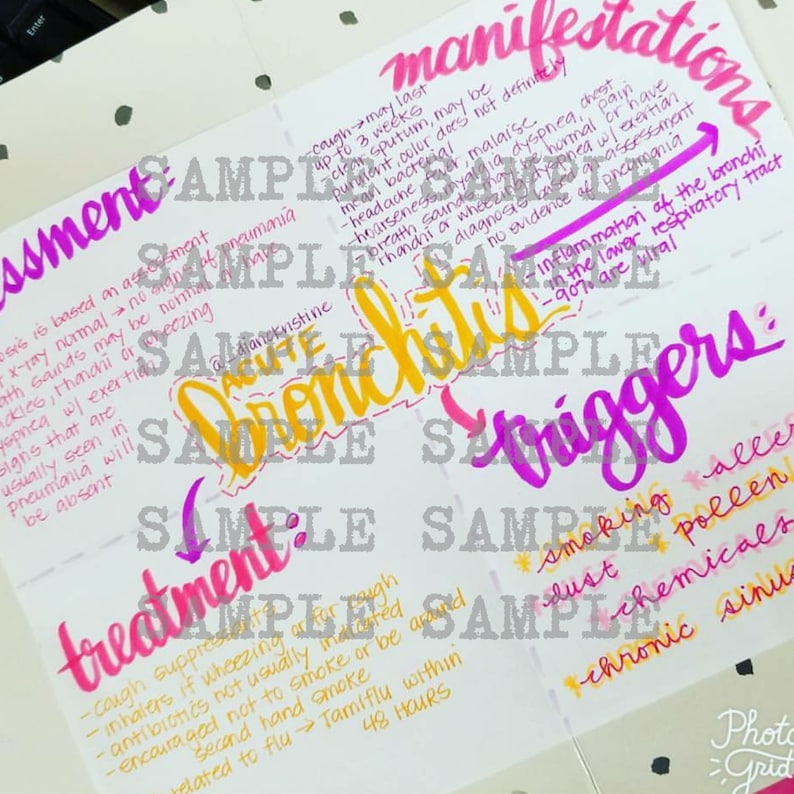 Enter
manifestations
-cough → may last
up to 3 weeks
-clear sputum, may be
purulent, color does not definitely
mean bacterial
-headache, fever, malaise
-hoarseness, myalgia, dyspnea, chest pain
-breath sounds may be normal or have
rhonchi or wheezing, dyspnea w/ exertion
diagnosis based on assessment
no evidence of pneumonia
ssment:
osis is based on assessment
x-ray normal → no signs of pneumonia
ath sounds may be normal or have
ckles, rhonchi or wheezing
dyspnea w/ exertion
signs that are
usually seen in
pneumonia will
be absent
@_dianekristine
ACUTE
bronchitis
- inflammation of the bronchi
in the lower respiratory tract
-90% are viral
triggers:
*smoking
*pollen
dust
*chemicals
*chronic
treatment:
-cough suppressants
-inhalers if wheezing or for cough
-antibiotics not usually indicated
-encouraged not to smoke or be around
second hand smoke
related to flu → Tamiflu within
48 HOURS
SAMPLE SAMPLE
SAMPLE SAMPLE
SAMPLE SAMPLE
SAMPLE SAMPLE
SAMPLE SAMPLE
SAMPLE SAMPLE
Photo
Grid